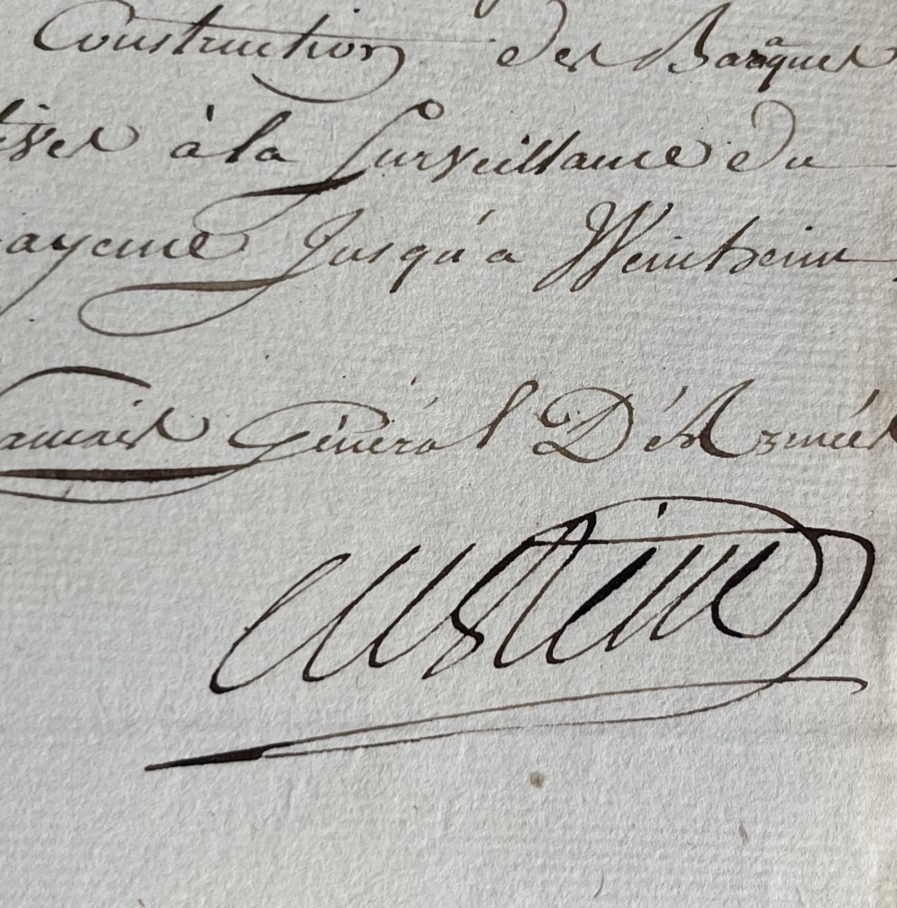 Construction des Baraques
tives à la Surveillance du
ayence Jusqu'a Weinheim
Général D'Armées
Custine